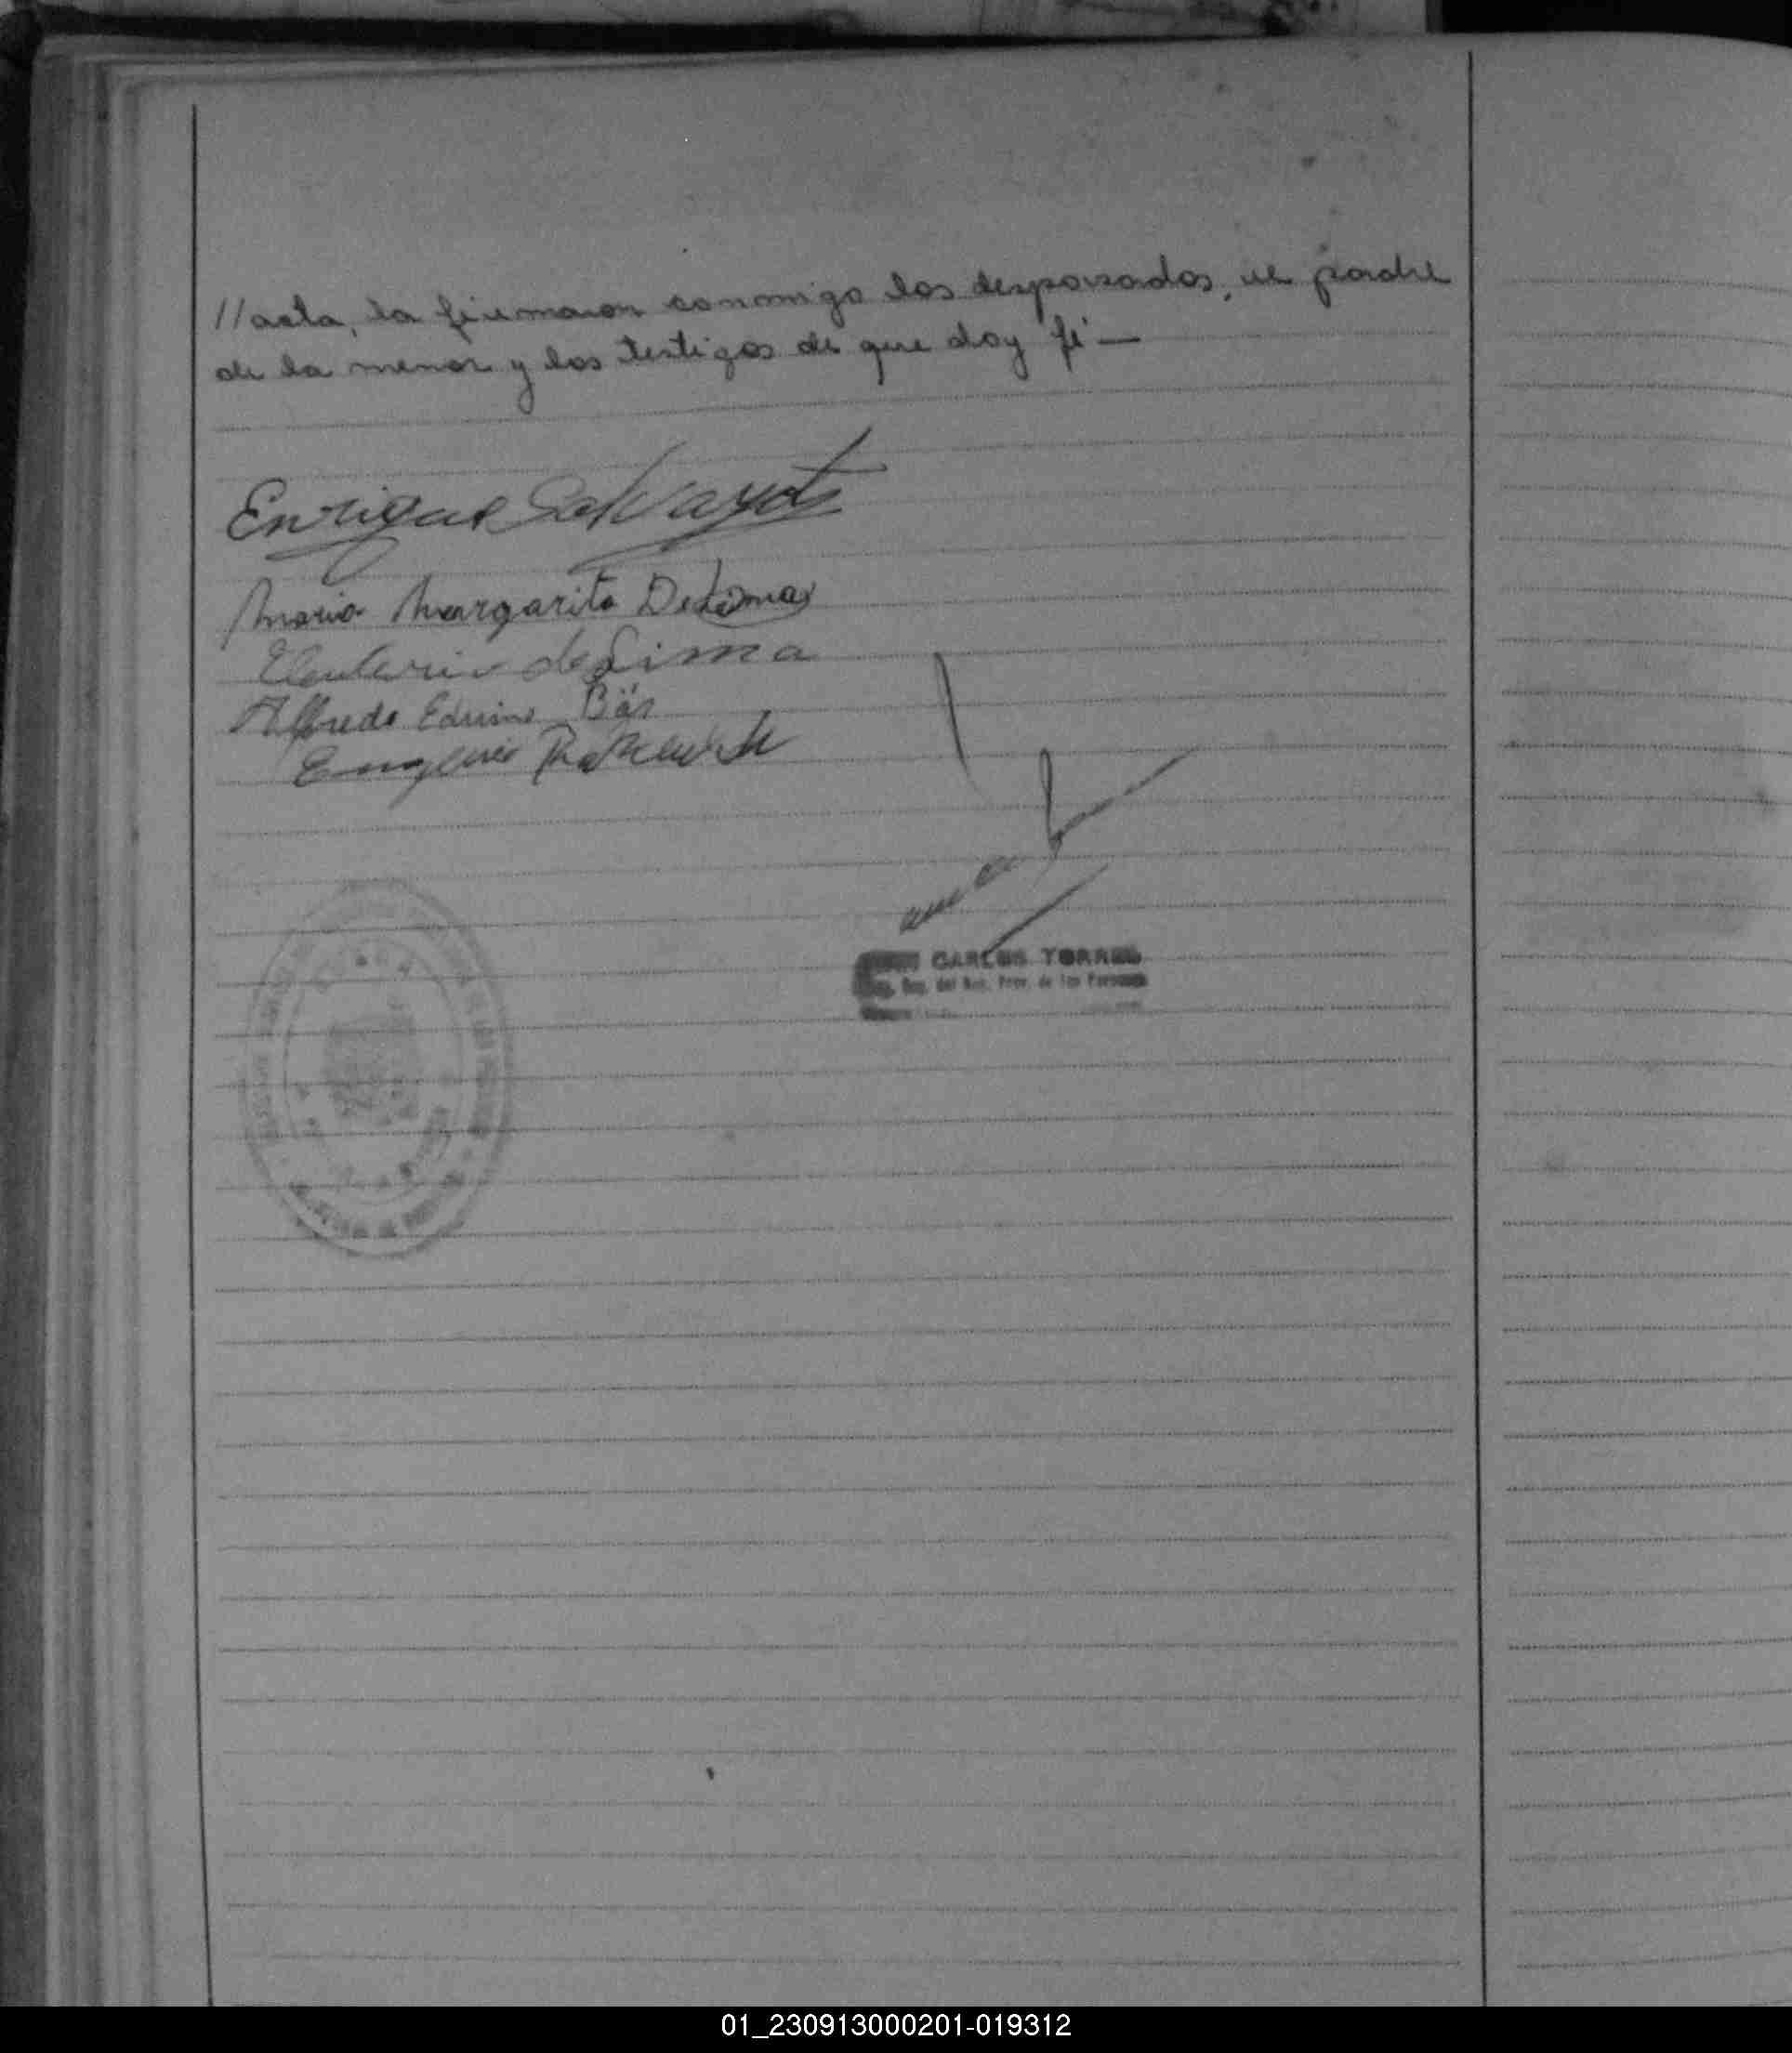 //acta, la firmaron conmigo los desposados, el padre
de la menor y los testigos de que doy fé —
Enrique Salvayot
Maria Margarita DeLima
Eleuterio de Lima
Alfredo Eduino Bär
Eugenio
CARLOS TORRES
del Reg. Prov. de las Personas
01_230913000201-019312